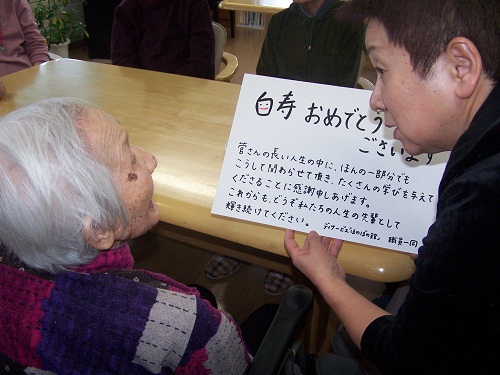 白寿 おめでとう
ございます
菅さんの長い人生の中に、ほんの一部分でも
こうして関わらせて頂き、たくさんの学びを与えて
くださることに感謝申しあげます。
これからも、どうぞ私たちの人生の先輩として
輝き続けてください。
デイサービス「ほのぼの銀」 職員一同